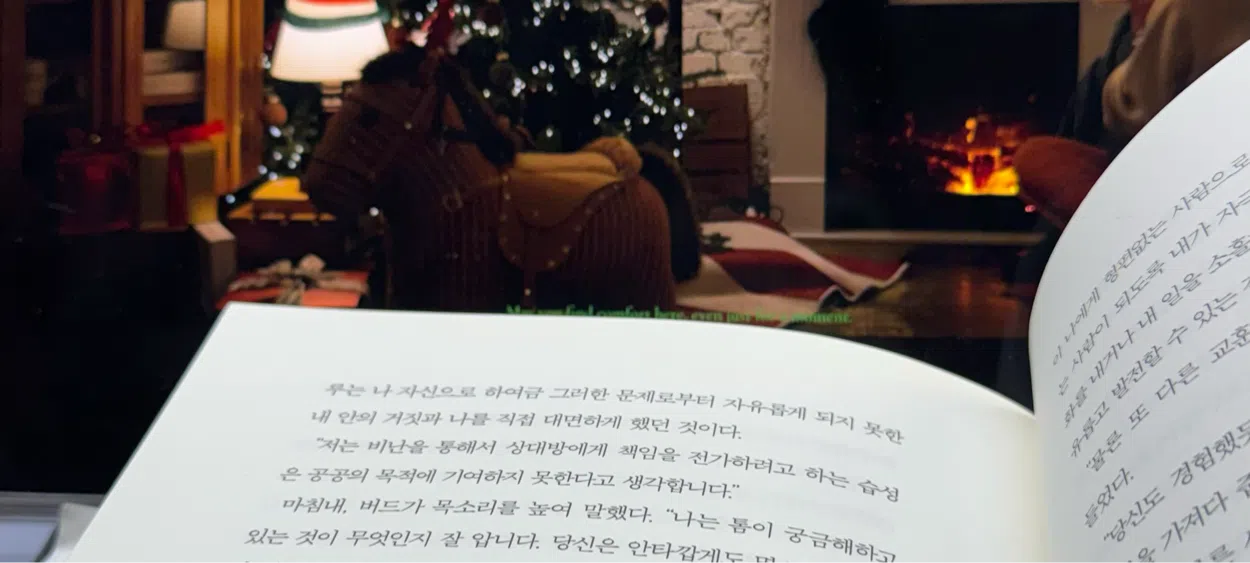 May you find comfort here, even just for a moment.
루는 나 자신으로 하여금 그러한 문제로부터 자유롭게 되지 못한
내 안의 거짓과 나를 직접 대면하게 했던 것이다.
"저는 비난을 통해서 상대방에게 책임을 전가하려고 하는 습성
은 공공의 목적에 기여하지 못한다고 생각합니다."
마침내, 버드가 목소리를 높여 말했다. "나는 톰이 궁금해하고
있는 것이 무엇인지 잘 압니다. 당신은 안타깝게도
이 나에게 형편없는 사람으로
는 사람이 되도록 내가 자극
화를 내거나 내 일을 소홀
유롭고 발전할 수 있는
또 다른 교훈
들었다.
"당신도 경험했듯
을 가져다